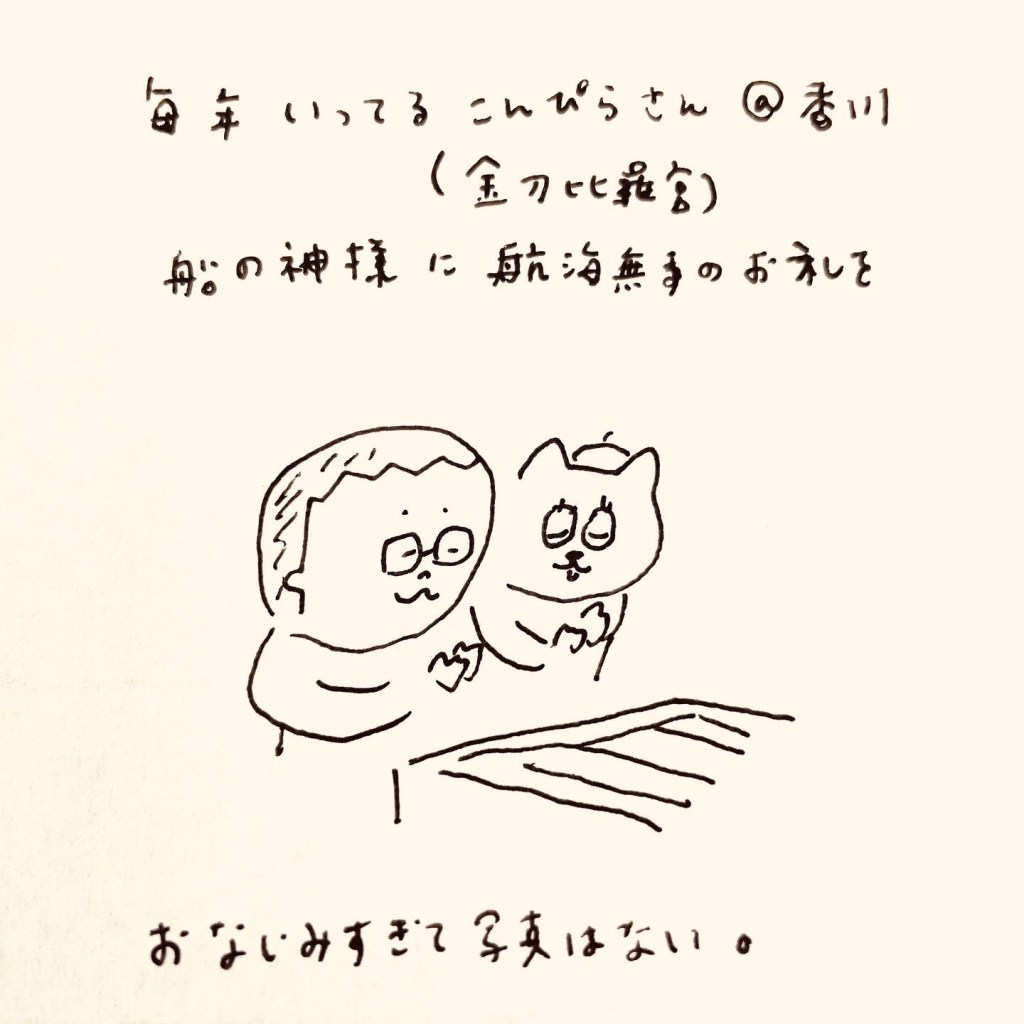 毎年 いってる こんぴらさん @香川
(金刀比羅宮)
船の神様に 航海無事のお礼を
おなじみすぎて写真はない。